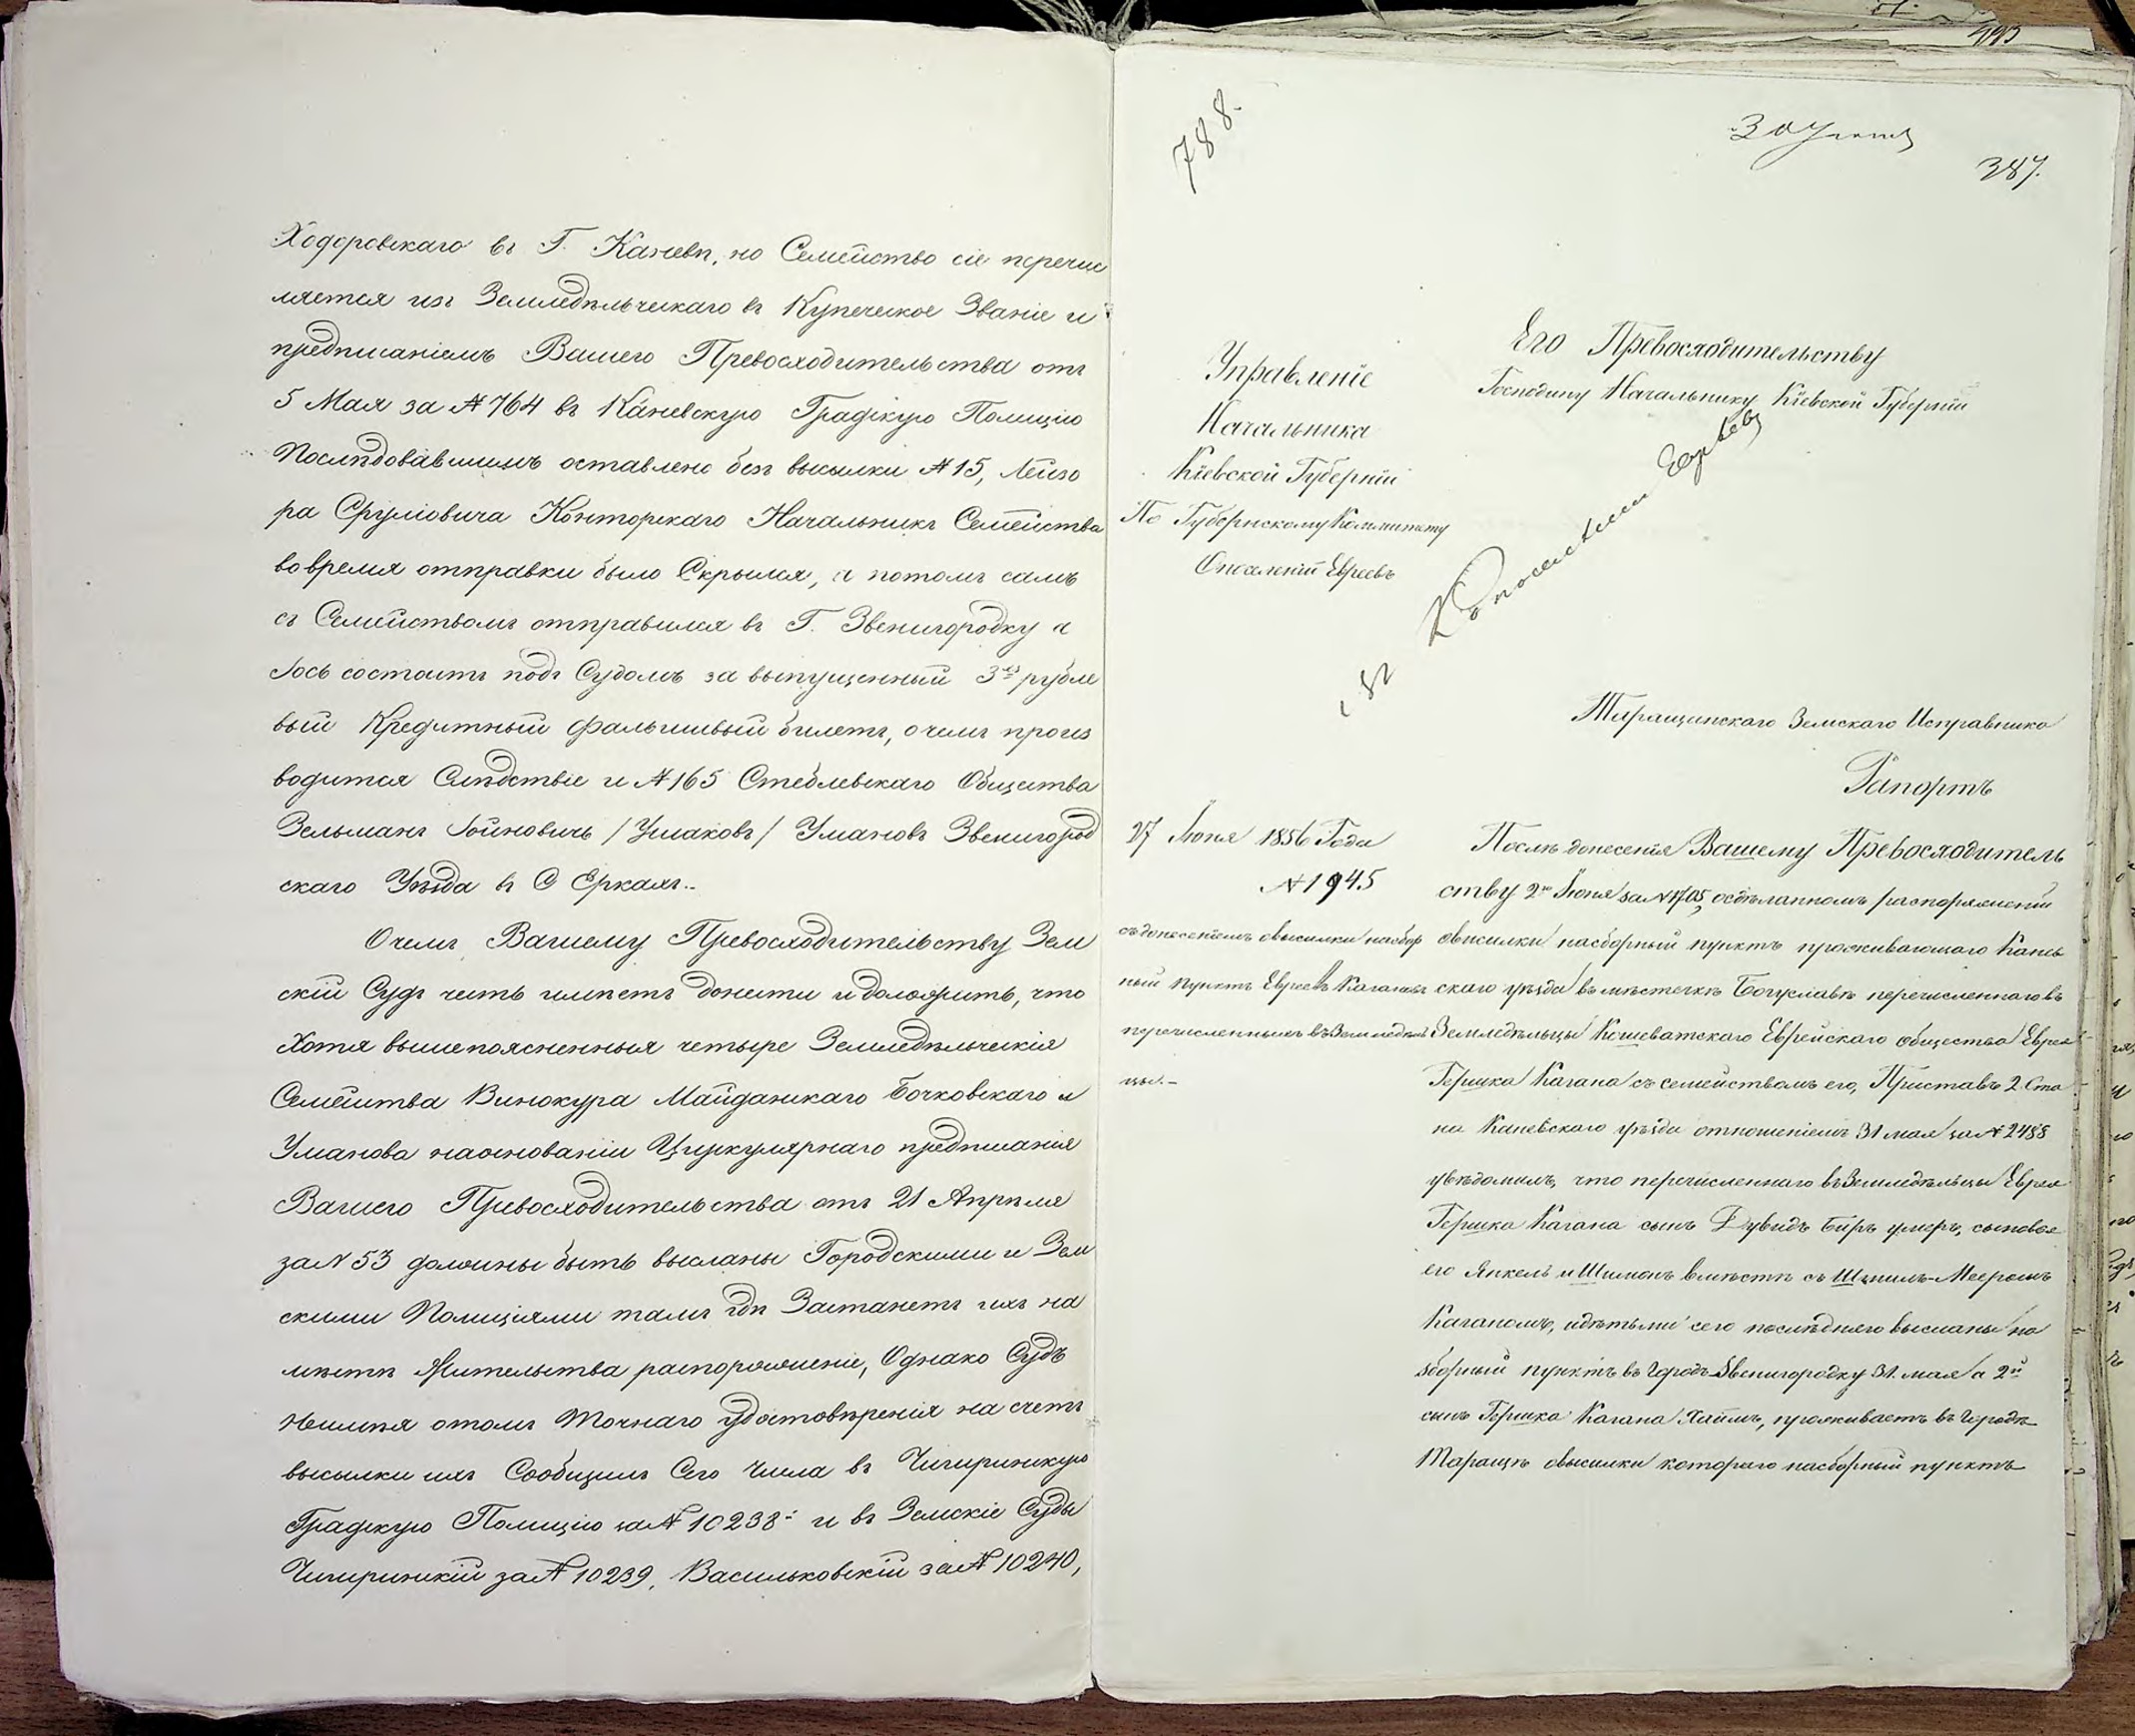 Ходоровскаго въ Г. Каневѣ, но Семейство сіе перечис
ляется изъ Земледѣльческаго въ Купеческое Званіе и
предписаніемъ Вашего Превосходительства отъ
5 Мая за № 764 въ Каневскую Градскую Полицію
Послѣдовавшимъ оставлено безъ высылки № 15, Лейзо
ра Сруліовича Конторскаго Начальникъ Семейства
во время отправки было Скрылся, а потомъ самъ
съ Семействомъ отправился въ Г. Звенигородку а
Іось состоитъ подъ Судомъ за выпущенный 3хъ рубле
вый Кредитный фальшивый билетъ, о чемъ произ
водится Слѣдствіе и № 165 Стеблевскаго Общества
Зельманъ Іойновичь /Ушаковъ/ Умановъ Звенигород
скаго Уѣзда въ С Еркахъ..
О чемъ, Вашему Превосходительству Зем
скій Судъ честь имѣетъ донести и доложить, что
Хотя вышепоясненныя четыре Земледѣльческія
Семейства Винокура Майданскаго Бочковскаго и
Уманова наоснованіи Циркулярнаго предписанія
Вашего Превосходительства отъ 21 Апрѣля
за N 53 должны быть высланы Городскими и Зем
скими Полиціями тамъ гдѣ Застанетъ ихъ на
мѣстѣ Жительства распоряженіе, Однако Судъ
неимѣя отомъ Точнаго удостовѣренія на счетъ
высылки ихъ Сообщилъ Сего Числа въ Чигиринскую
Градскую Полицію за № 10238 и въ Земскіе Суды
Чигиринскій за № 10239, Васильковскій за № 10240,
788.
30 Іюня
387.
Управленіе
Начальника
Кіевской Губерніи
По Губернскому Коммитету
О поселеніи Евреевъ
Его Превосходительству
Господину Начальнику Кіевской Губерніи
Таращанскаго Земскаго Исправника
Рапортъ
27 Іюня 1856 Года
№ 1945
съ донесеніемъ овысылки насбор
ный пунктъ Евреевъ Кагановъ
перечисленныхъ въ Земледѣль
цы.-
Послѣ донесенія Вашему Превосходитель
ству 2го Іюня за N 1705, осдѣланномъ распоряженіи
овысилки насборный пунктъ проживающаго Канев
скаго уѣзда въ мѣстечкѣ Богуславѣ перечисленнаго въ
Земледѣльцы Кошеватскаго Еврейскаго общества Еврея
Гершка Кагана съ семействомъ его, Приставъ 2. Ста
на Каневскаго уѣзда отношеніемъ 31 мая за № 2488
увѣдомилъ, что перечисленнаго въ Земледѣльцы Еврея
Гершка Кагана сынъ Дувидъ Беръ умеръ, сыновья
его Янкель и Шимонъ вмѣстѣ съ Шмиль-Мееромъ
Каганомъ, идѣтьми сего послѣдняго высланы на
зборный пунктъ въ городъ Звенигородку 31. мая а 2й
сынъ Гершка Кагана Хаимъ, проживаетъ въ городѣ
Таращѣ овысилки котораго насборный пунктъ